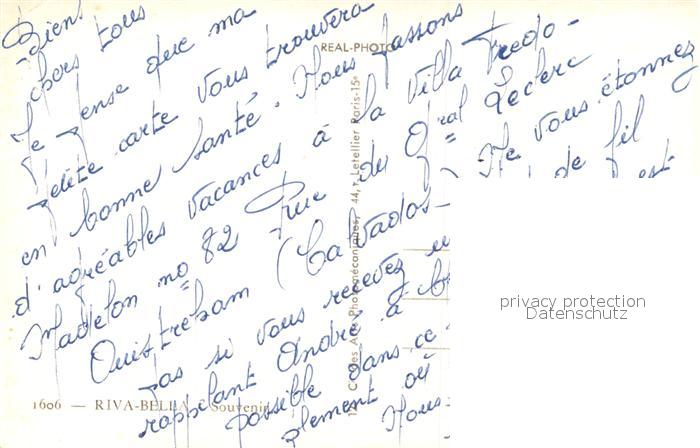 Bien
chers tous
Je pense que ma
petite carte vous trouvera
en bonne santé. Nous passons
d'agréables vacances à la villa Fredo-
Madelon no 82 Rue du Gral Leclerc
Ouistreham (Calvados- Ne vous étonnez
pas si vous recevez de fil
rappelant André à est
possible dans ce
plement où
Nous
REAL-PHOTO
Cartes Arts Photomécaniques, 44, r. Letellier Paris-15e
1606 — RIVA-BELLA Souvenir
privacy protection
Datenschutz